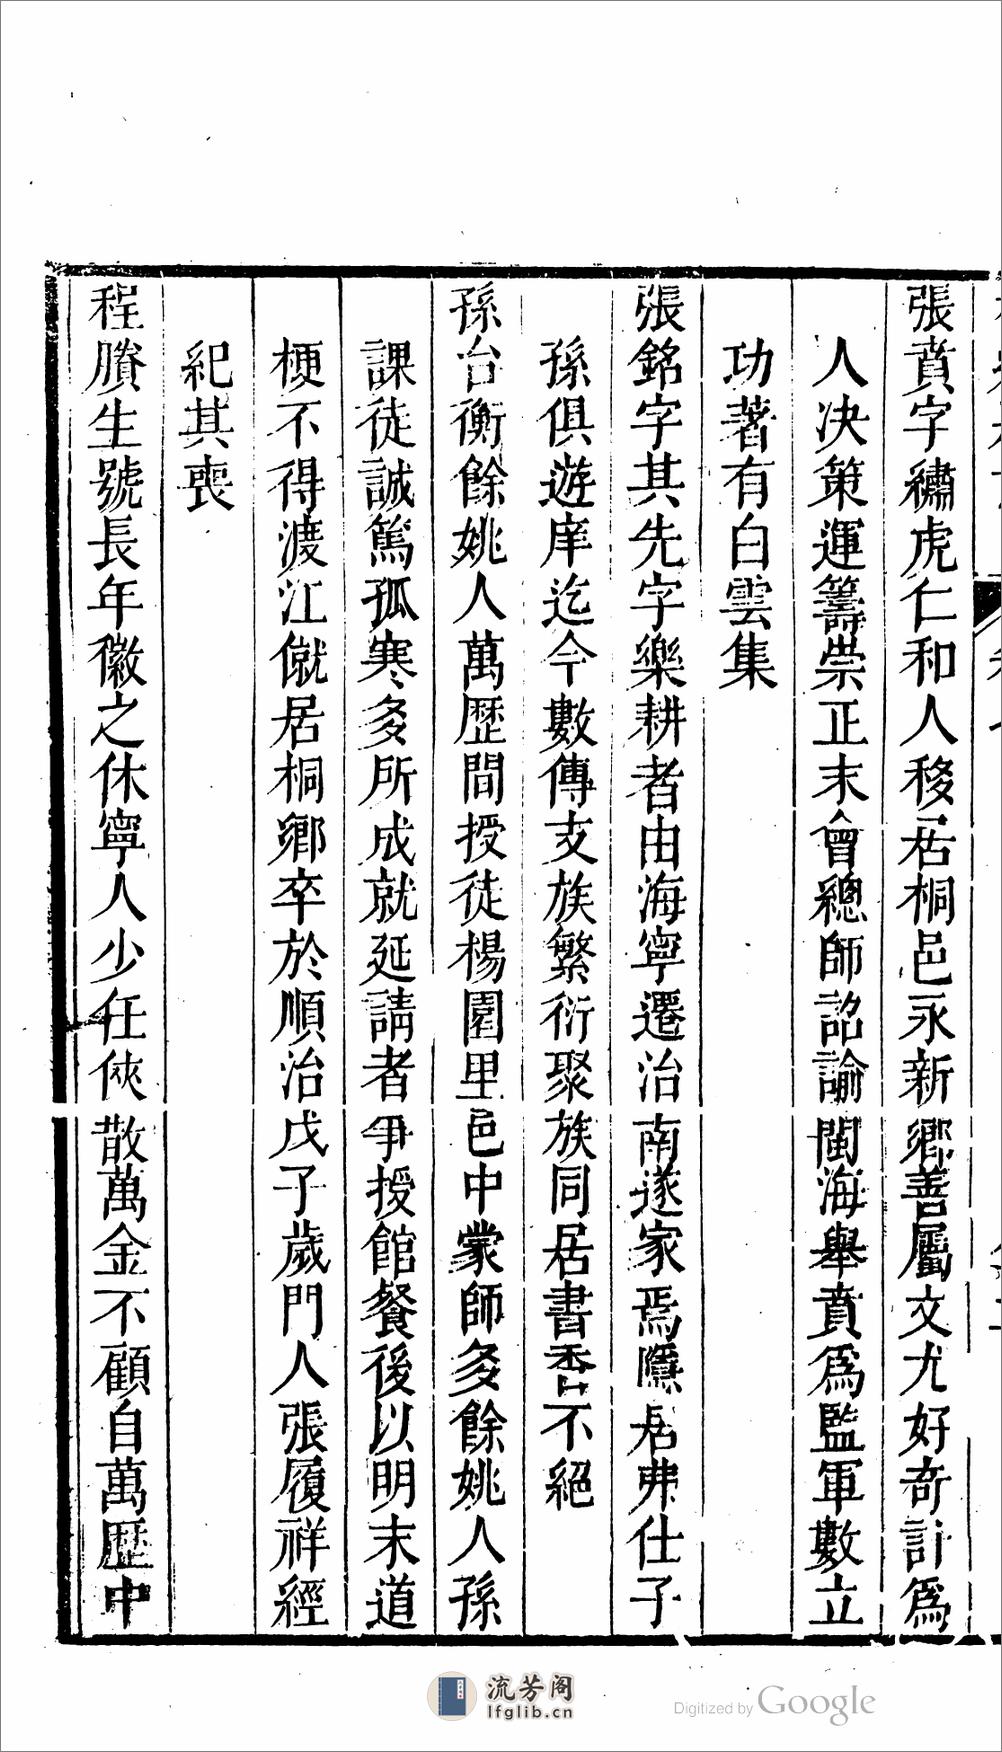 張賁字繡虎仁和人移居桐邑永新鄉善屬文尤好奇計爲
人决策運籌崇正末會總師詔諭閩海舉賁爲監軍數立
功著有白雲集
張銘字其先字樂耕者由海寧遷治南遂家焉隱居弗仕子
孫俱遊庠迄今數傳支族繁衍聚族同居書香不絕
孫台衡餘姚人萬歷間授徒楊園里邑中蒙師多餘姚人孫
課徒誠篤孤寒多所成就延請者爭授館餐後以明末道
梗不得渡江僦居桐鄉卒於順治戊子歲門人張履祥經
紀其喪
程賸生號長年徽之休寧人少任俠散萬金不顧自萬歷中
流芳阁
lfglib.cn
Digitized by Google